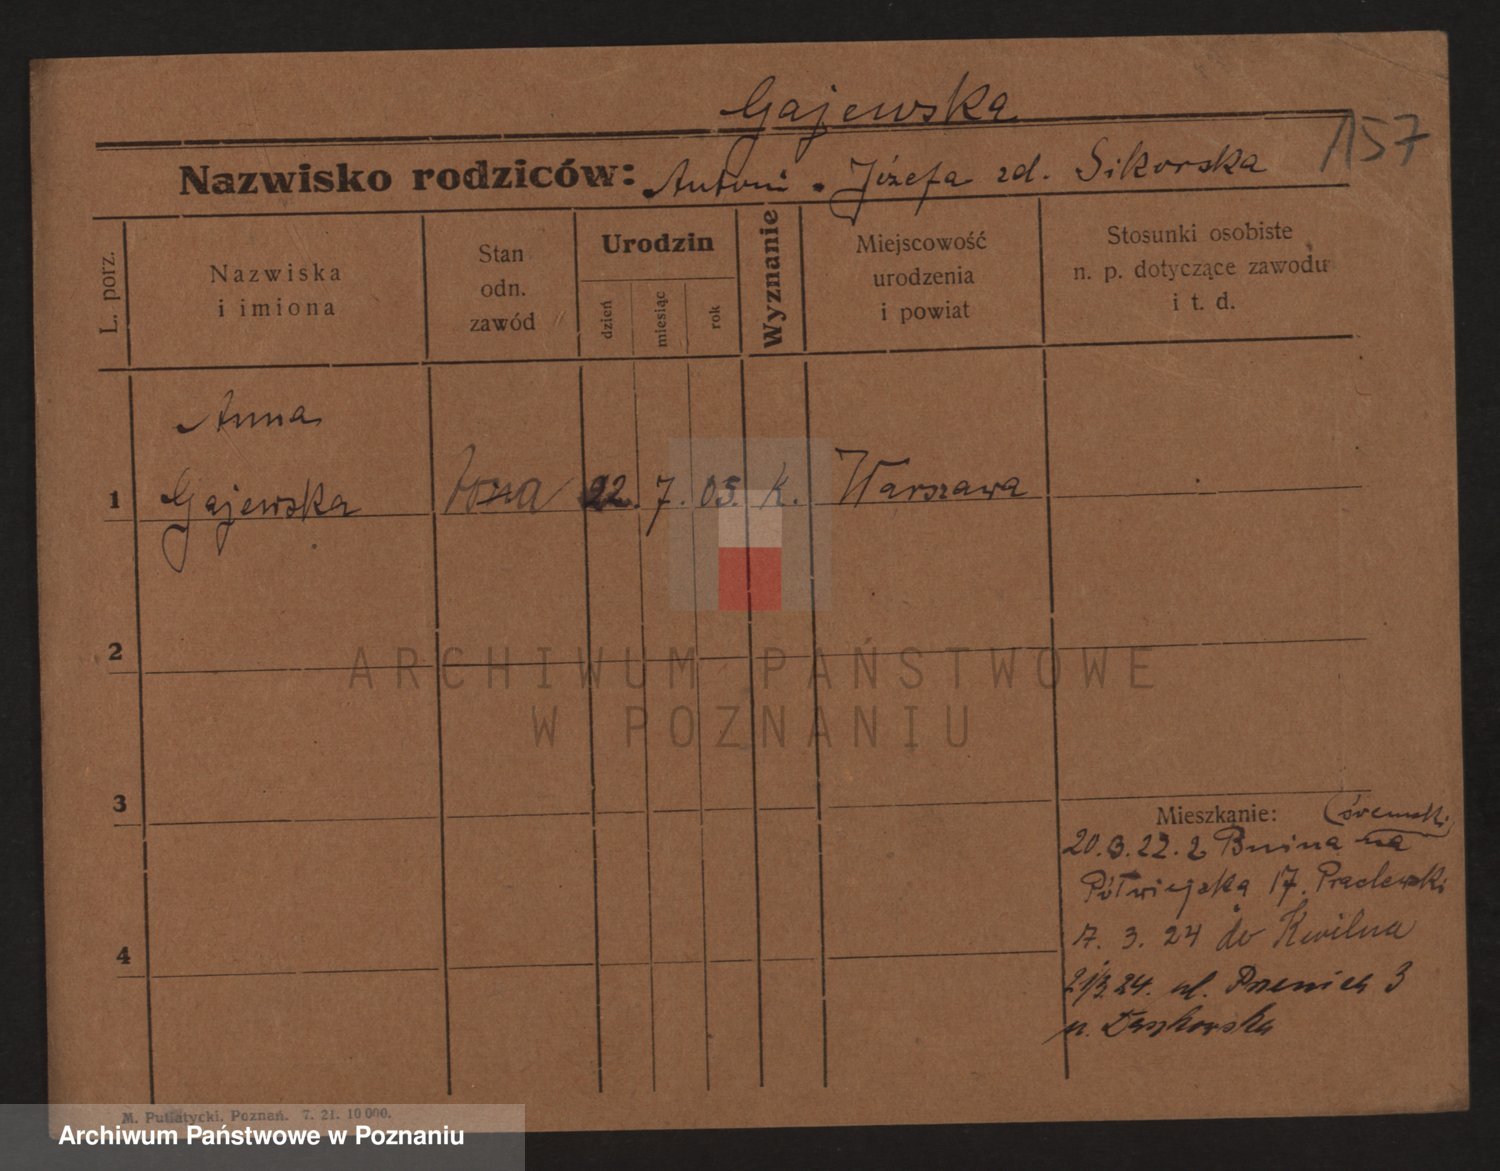 Gajewska
157
Nazwisko rodziców: Antoni . Józefa zd. Sikorska
L. porz.
Nazwiska
i imiona
Stan
odn.
zawód
Urodzin
dzień
miesiąc
rok
Wyznanie
Miejscowość
urodzenia
i powiat
Stosunki osobiste
n. p. dotyczące zawodu
i t. d.
Anna
1 Gajewska 22. 7. 05. K. Warszawa
2
3
4
Mieszkanie:
20.3.22. z Bnina na
Półwiejska 17.
17. 3. 24 do Kwilna
24. ul. 3
ARCHIWUM PAŃSTWOWE
W POZNANIU
M. Putiatycki, Poznań. 7. 21. 10 000.
Archiwum Państwowe w Poznaniu